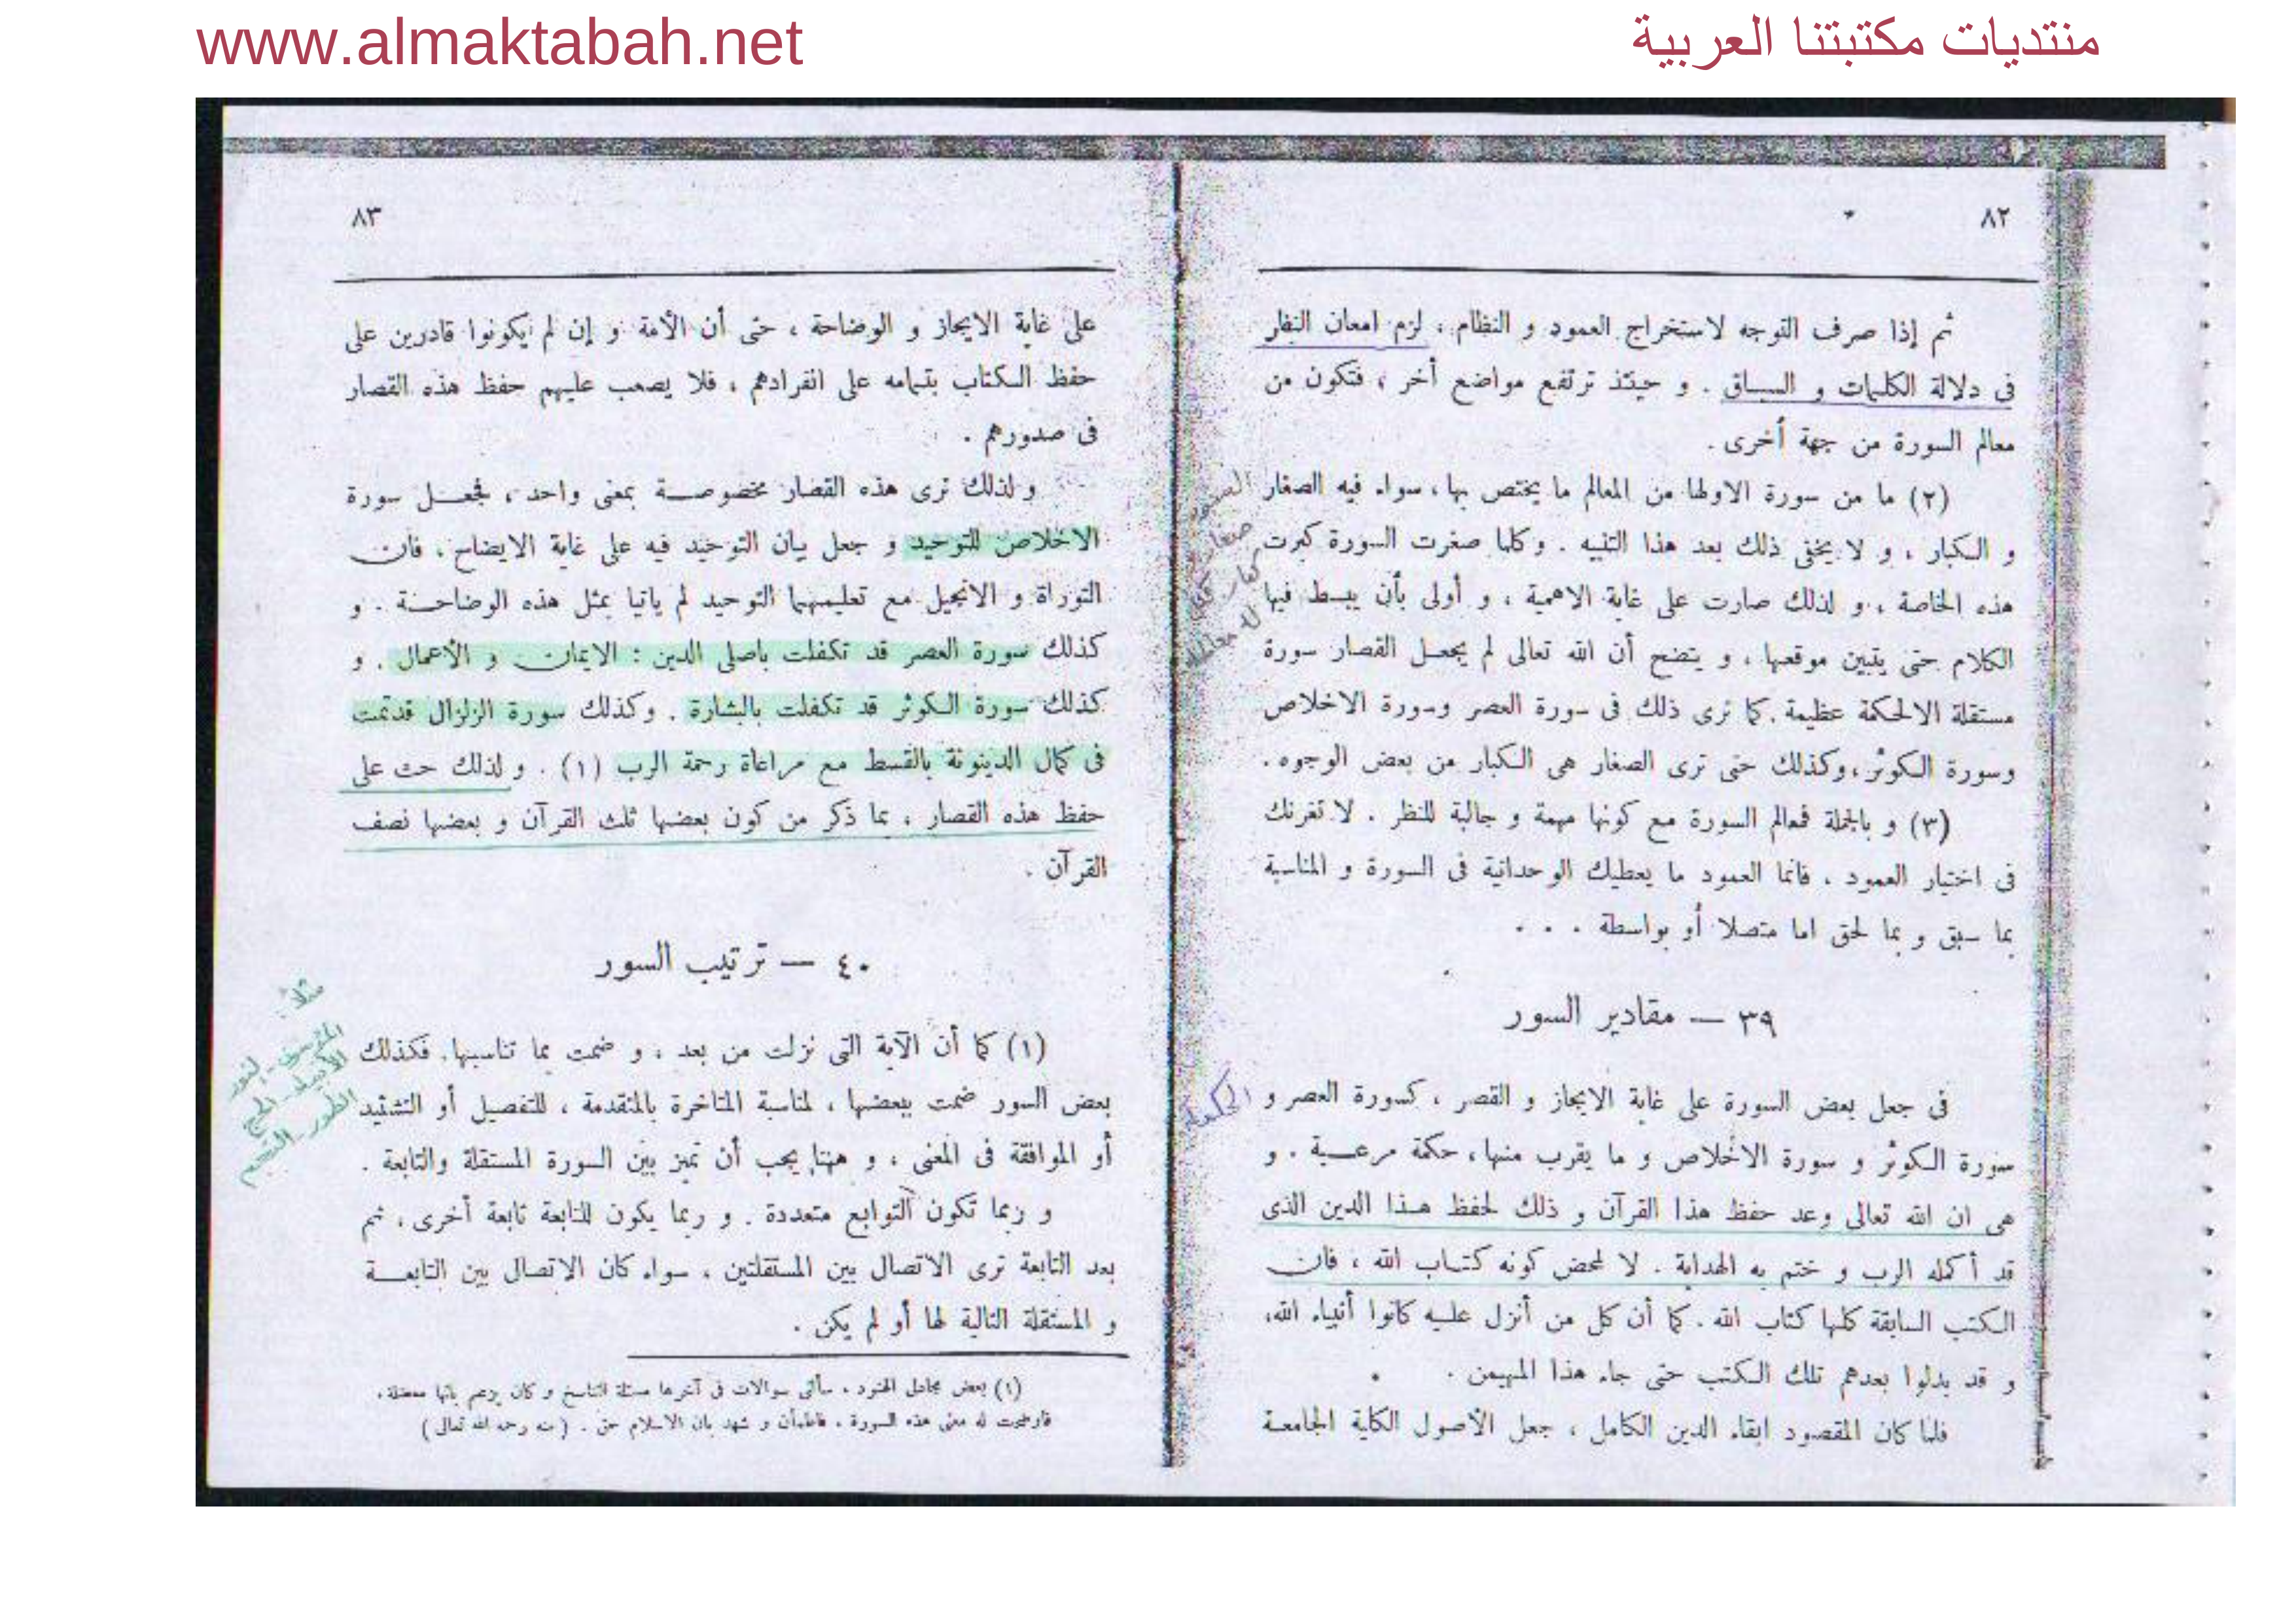 www.almaktabah.net
منتديات مكتبتنا العربية
٨٢
ثم إذا صرف التوجه لاستخراج العمود و النظام ، لزم امعان النظر
فى دلالة الكلمات و السياق . و حينئذ ترتفع مواضع أخر ، فتكون من
معالم السورة من جهة أخرى .
(٢) ما من سورة الاولها من المعالم ما يختص بها ، سواء فيه الصغار
و الكبار ، و لا يخفى ذلك بعد هذا التنبيه . وكلما صغرت السورة كبرت
هذه الخاصة ، و لذلك صارت على غاية الاهمية ، و أولى بأن يبسط فيها
الكلام حتى يتبين موقعها ، و يتضح أن الله تعالى لم يجعل القصار سورة
مستقلة الالحكمة عظيمة . كما ترى ذلك فى سورة العصر وسورة الاخلاص
وسورة الكوثر ، وكذلك حتى ترى الصغار هى الكبار من بعض الوجوه .
(٣) و بالجملة فمعالم السورة مع كونها مهمة و جالبة للنظر . لا تغرنك
فى اختيار العمود . فانما العمود ما يعطيك الوحدانية فى السورة و المناسبة
بما سبق و بما لحق اما متصلا أو بواسطة . . .
٣٩ — مقادير السور
فى جعل بعض السورة على غاية الايجاز و القصر ، كسورة العصر و
سورة الكوثر و سورة الاخلاص و ما يقرب منها ، حكمة مرعية . و
هى ان الله تعالى وعد حفظ هذا القرآن و ذلك لحفظ هذا الدين الذى
قد أكمله الرب و ختم به الهداية . لا لمحض كونه كتاب الله ، فان
الكتب السابقة كلها كتاب الله . كما أن كل من أنزل عليه كانوا أنبياء الله،
و قد بدلوا بعدهم تلك الكتب حتى جاء هذا المهيمن .
فلما كان المقصود ابقاء الدين الكامل ، جعل الأصول الكلية الجامعة
السور
صغارها
كبار
له معالمه
الحكمة
٨٣
على غاية الايجاز و الوضاحة ، حتى أن الأمة و إن لم يكونوا قادرين على
حفظ الكتاب بتمامه على انفرادهم ، فلا يصعب عليهم حفظ هذه القصار
فى صدورهم .
و لذلك ترى هذه القصار مخصوصة بمعنى واحد ، فجعل سورة
الاخلاص للتوحيد و جعل بيان التوحيد فيه على غاية الايضاح ، فان
التوراة و الانجيل مع تعليمهما التوحيد لم ياتيا بمثل هذه الوضاحة . و
كذلك سورة العصر قد تكفلت باصلى الدين : الايمان و الأعمال . و
كذلك سورة الكوثر قد تكفلت بالبشارة . وكذلك سورة الزلزال قدتمت
فى كمال الدينونة بالقسط مع مراعاة رحمة الرب (١) . و لذلك حث على
حفظ هذه القصار ، بما ذكر من كون بعضها ثلث القرآن و بعضها نصف
القرآن .
٤٠ — ترتيب السور
(١) كما أن الآية التى نزلت من بعد ، و ضمت بما تناسبها. فكذلك
بعض السور ضمت ببعضها ، لمناسبة المتاخرة بالمتقدمة ، للتفصيل أو التشئيد
أو الموافقة فى المغنى ، و ههنا يجب أن تميز بين السورة المستقلة والتابعة .
و ربما تكون التوابع متعددة . و ربما يكون للتابعة تابعة أخرى ، ثم
بعد التابعة ترى الاتصال بين المستقلتين ، سواء كان الاتصال بين التابعة
و المستقلة التالية لها أو لم يكن .
(١) بعض مجادل الهنود ، سألنى سوالات فى آخرها مسئلة التناسخ و كان يزعم بانها معضلة ،
فاوضحت له معنى هذه السورة ، فاطمأن و شهد بان الاسلام حق . ( منه رحمه الله تعالى )
مثلاً :
المؤمنون - النور
الأنبياء - الحج
الطور - النجم